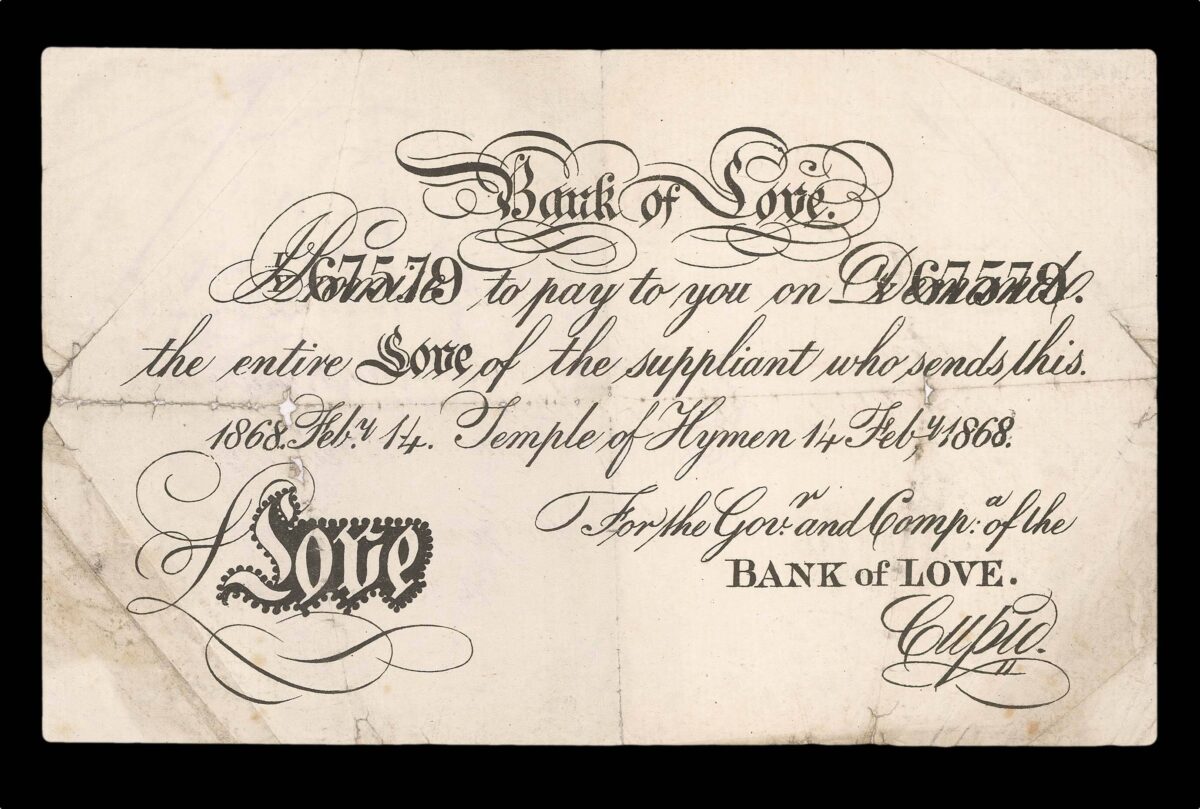 Bank of Love.
I Promise 67579 to pay to you on Demand 67579.
the entire Love of the suppliant who sends this.
1868. Feb.y 14. Temple of Hymen 14 Feb.y 1868.
For the Gov.r and Comp:a of the
BANK of LOVE.
£ Love
Cupid.